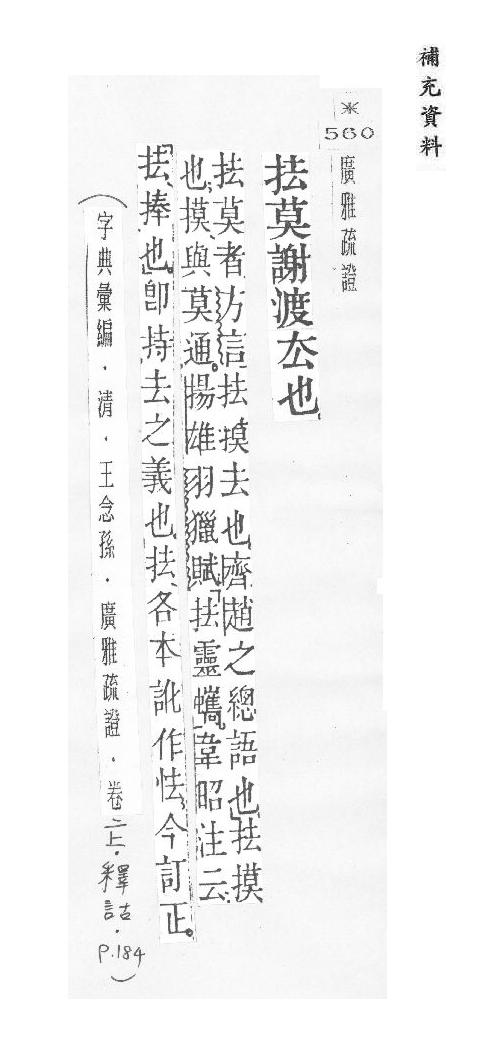 補充資料
※
560
廣雅疏證
抾莫謝渡厺也
抾莫者方言抾摸去也齊趙之總語也抾摸
也摸與莫通。揚雄羽獵賦「抾靈蠵」韋昭注云:
「抾、捧也」卽持去之義也抾、各本訛作怯、今訂正。
(字典彙編．清．王念孫．廣雅疏證．卷二上．釋詁．P.184)